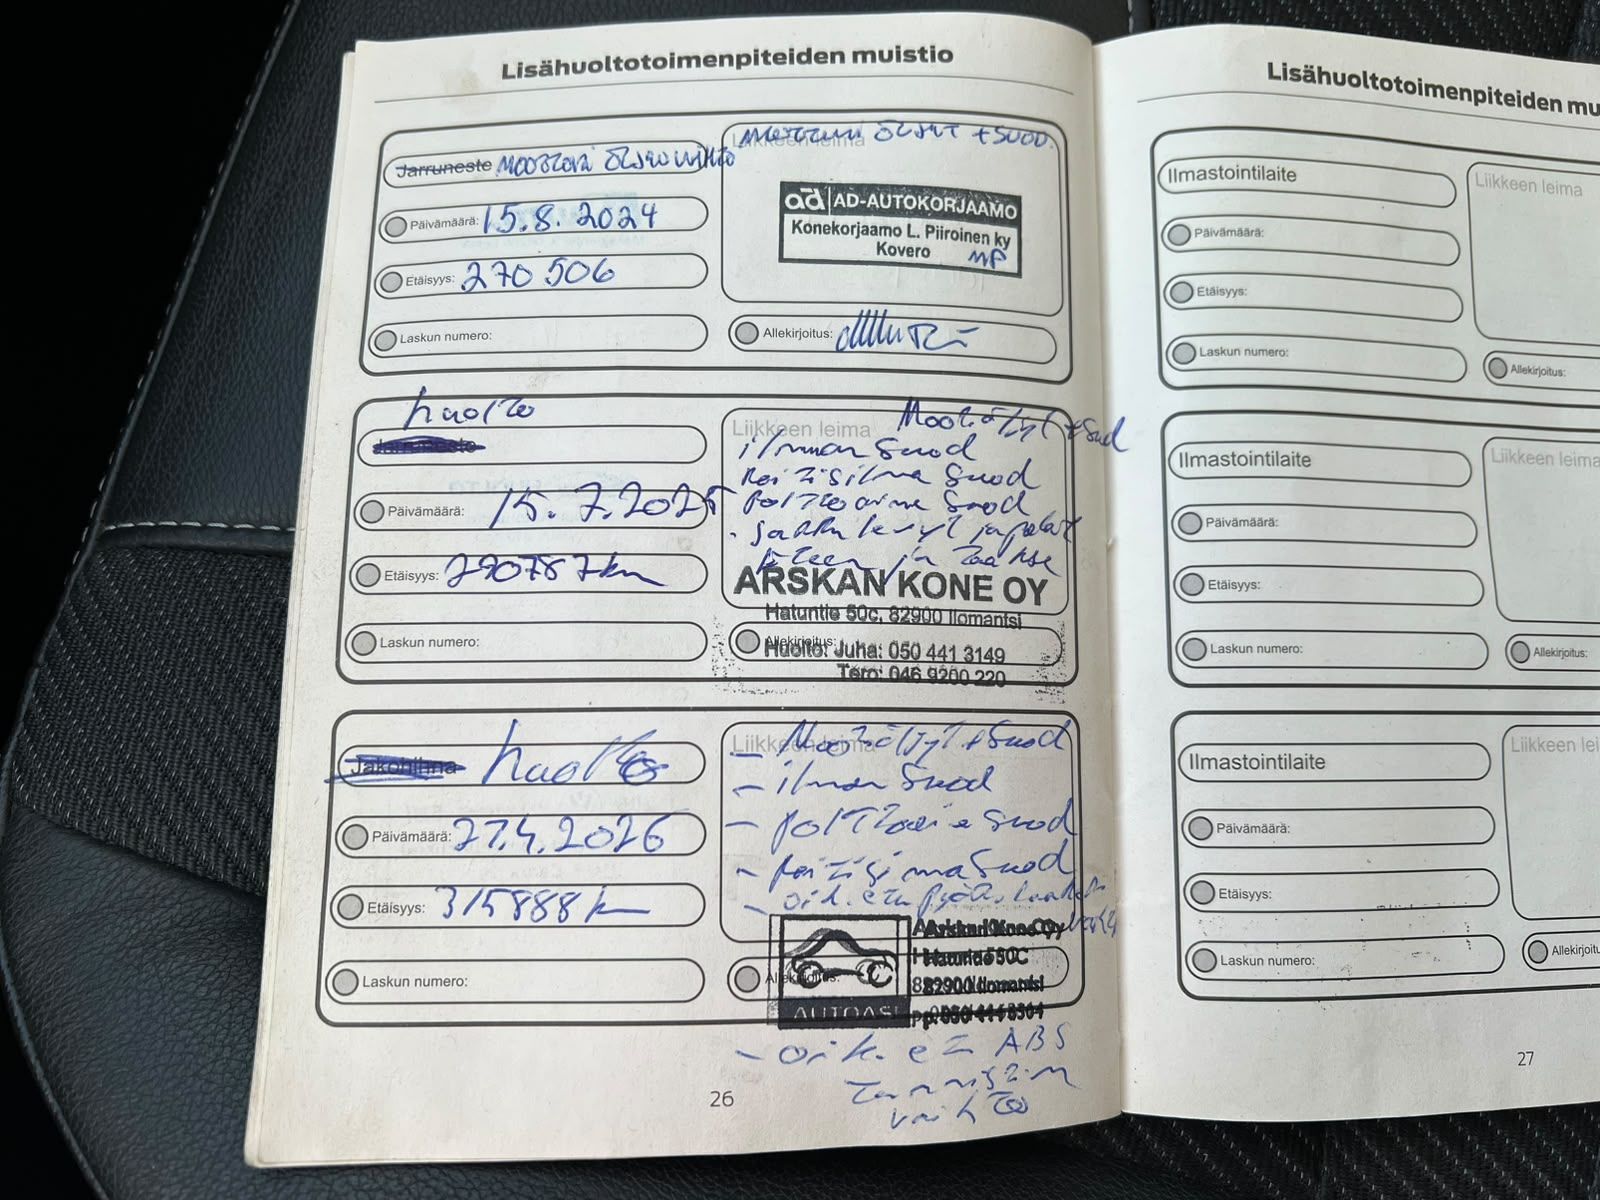 Lisähuoltotoimenpiteiden muistio
Jarruneste Moottori öljynvaihto
Päivämäärä: 15.8.2024
Etäisyys: 270 506
Laskun numero:
öljyt + suod.
Liikkeen leima
ad AD-AUTOKORJAAMO
Konekorjaamo L. Piiroinen ky
Kovero MP
Allekirjoitus:
huolto
Päivämäärä: 15.7.2025
Etäisyys: 290787 km
Laskun numero:
Liikkeen leima
Mootöljyt + suod
ilman suod
raitisilma suod
polttoaine suod
- jarrulevyt ja palat
eteen ja taakse
ARSKAN KONE OY
Hatuntie 50c, 82900 Ilomantsi
Allekirjoitus:
Huolto: Juha: 050 441 3149
Tero: 046 9200 220
huolto
Jakohihna
Päivämäärä: 27.4.2026
Etäisyys: 315888 km
Laskun numero:
Liikkeen leima
- Mootöljyt + suod
- ilman suod
- polttoaine suod
- raitisilmasuod
- oik. etu pyörän laakeri
Arskan Kone Oy
Hatuntie 50C
82900 Ilomantsi
Allekirjoitus:
AUTOASI
- oik. et ABS
tunnistin
vaihto
26
Lisähuoltotoimenpiteiden mu
Ilmastointilaite
Päivämäärä:
Etäisyys:
Laskun numero:
Liikkeen leima
Allekirjoitus:
Ilmastointilaite
Päivämäärä:
Etäisyys:
Laskun numero:
Liikkeen leima
Allekirjoitus:
Ilmastointilaite
Päivämäärä:
Etäisyys:
Laskun numero:
Liikkeen lei
Allekirjoitus:
27